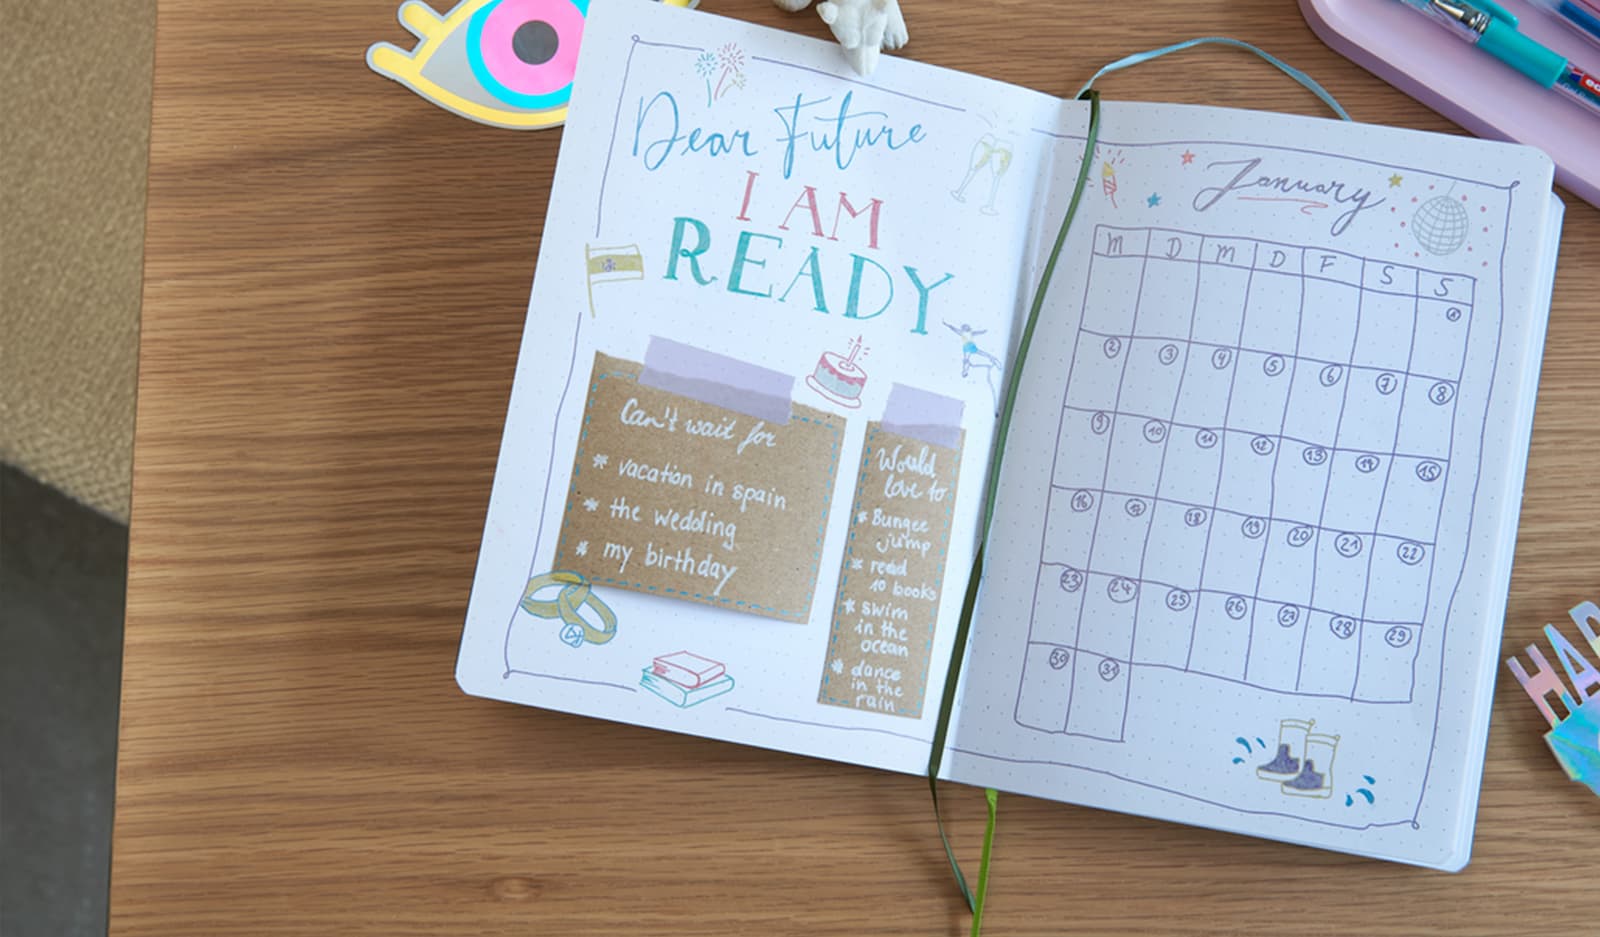 Dear Future
I AM
READY
Can't wait for
* vacation in spain
* the wedding
* my birthday
Would
love to
* Bungee
jump
* read
10 books
* swim
in the
ocean
* dance
in the
rain
January
M D M D F S S
1
2 3 4 5 6 7 8
9 10 11 12 13 14 15
16 17 18 19 20 21 22
23 24 25 26 27 28 29
30 31